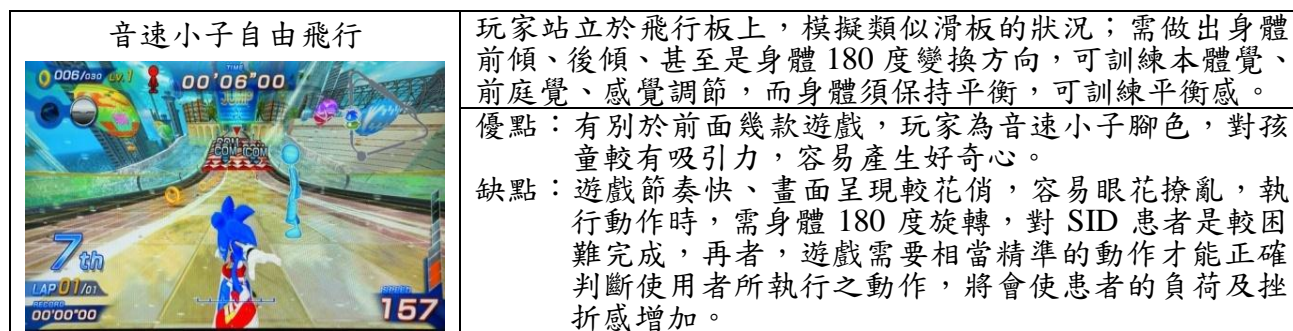 音速小子自由飛行
006/030 LV.1
TIME
00'06"00
JUMP
COM COM
7th
LAP 01/01
RECORD
00'00"00
SPEED
157
玩家站立於飛行板上，模擬類似滑板的狀況；需做出身體
前傾、後傾、甚至是身體 180 度變換方向，可訓練本體覺、
前庭覺、感覺調節，而身體須保持平衡，可訓練平衡感。
優點：有別於前面幾款遊戲，玩家為音速小子腳色，對孩
童較有吸引力，容易產生好奇心。
缺點：遊戲節奏快、畫面呈現較花俏，容易眼花撩亂，執
行動作時，需身體 180 度旋轉，對 SID 患者是較困
難完成，再者，遊戲需要相當精準的動作才能正確
判斷使用者所執行之動作，將會使患者的負荷及挫
折感增加。